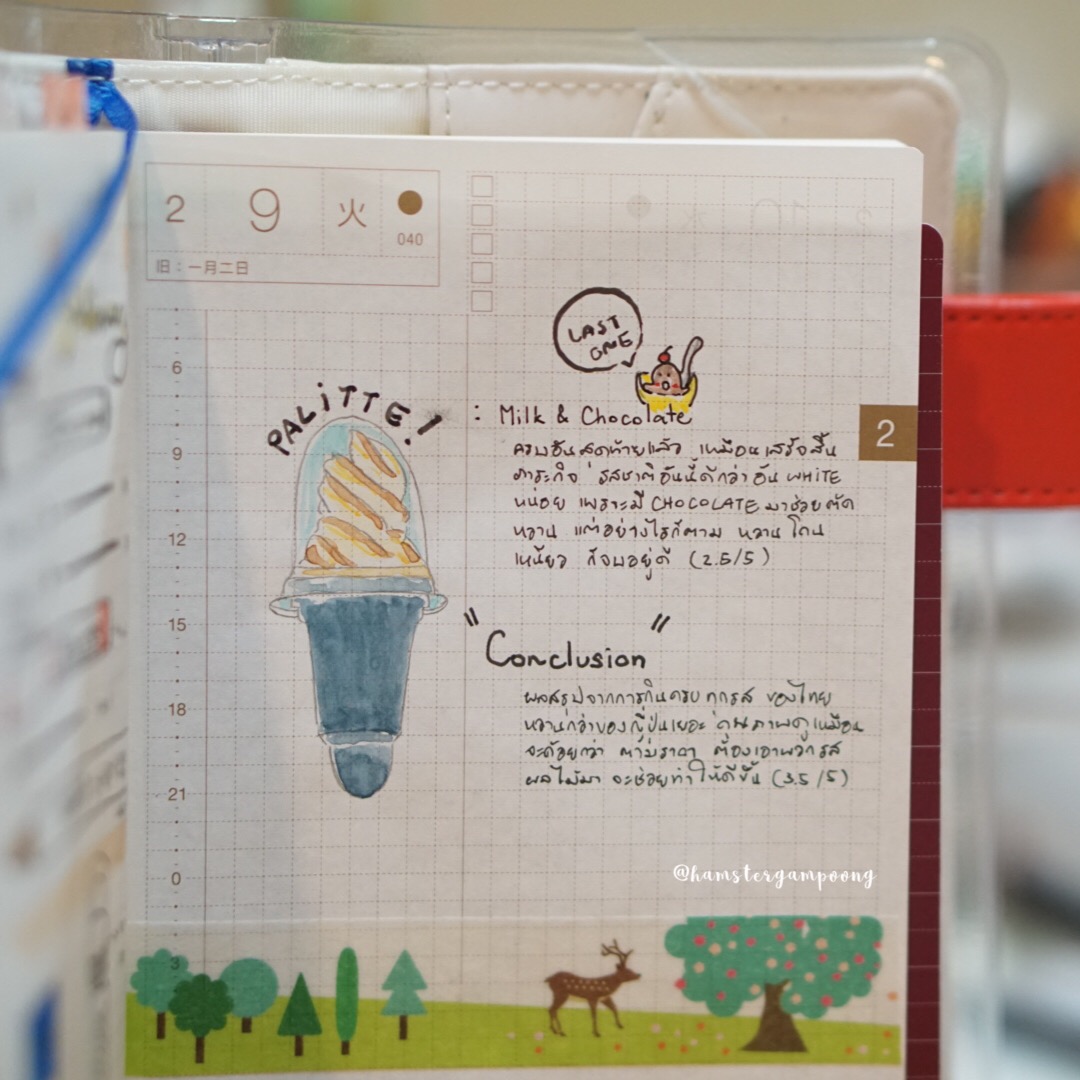 2 9 火
040
旧：一月二日
LAST
ONE
PALiTTE!
: Milk & Chocolate
ครบอันสุดท้ายแล้ว เหมือนเสร็จสิ้น
ภาระกิจ รสชาติอันนี้ดีกว่าอัน WHiTE
หน่อย เพราะมี CHOCOLATE มาช่วยตัด
หวาน แต่อย่างไรก็ตาม หวานโดน
เหนี่ยว ก็จบอยู่ดี (2.5/5)
2
"Conclusion"
ผลสรุปจากการกินครบทุกรส ของไทย
หวานกว่าของญี่ปุ่นเยอะ คุณภาพดูเหมือน
จะด้อยกว่า ตามราคา ต้องเอาพวกรส
ผลไม้มา จะช่วยทำให้ดีขึ้น (3.5/5)
6
9
12
15
18
21
0
3
@hamstergampoong